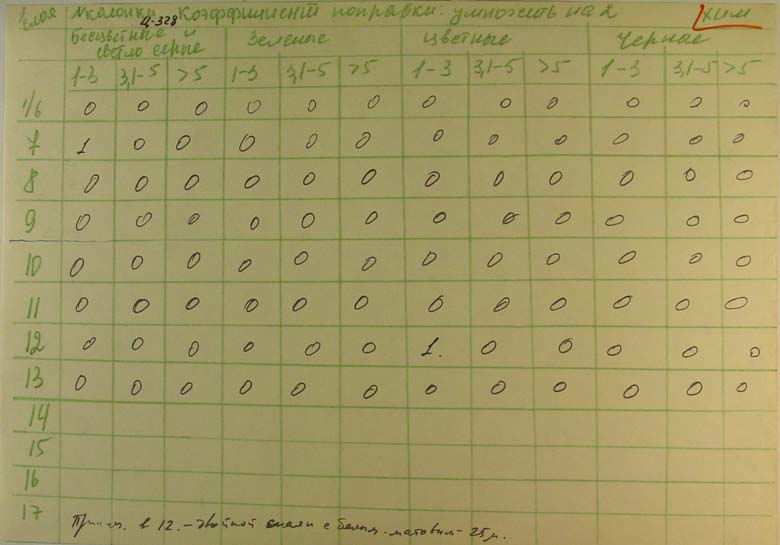 № слоя № колонки Ц-328 Коэффициент поправки: умножить на 2 ХИМ
Бесцветные и светло серые Зеленые Цветные Черные
1-3 3,1-5 >5 1-3 3,1-5 >5 1-3 3,1-5 >5 1-3 3,1-5 >5
1/6 0 0 0 0 0 0 0 0 0 0 0 0
7 1 0 0 0 0 0 0 0 0 0 0 0
8 0 0 0 0 0 0 0 0 0 0 0 0
9 0 0 0 0 0 0 0 0 0 0 0 0
10 0 0 0 0 0 0 0 0 0 0 0 0
11 0 0 0 0 0 0 0 0 0 0 0 0
12 0 0 0 0 0 0 1. 0 0 0 0 0
13 0 0 0 0 0 0 0 0 0 0 0 0
14
15
16
17
Примеч. в 12. - двойной с белым-матовым - 25 м.